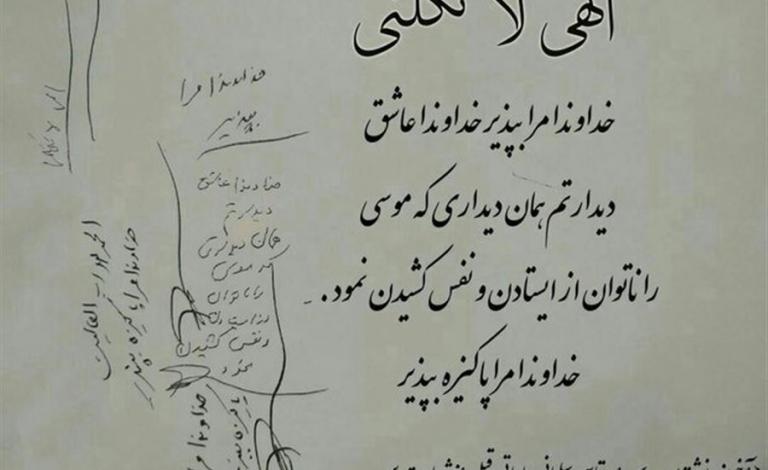 الهی لا تکلنی
خداوندا مرا بپذیر خداوندا عاشق
دیدارتم همان دیداری که موسی
را ناتوان از ایستادن و نفس کشیدن نمود.
خداوندا مرا پاکیزه بپذیر
خداوندا مرا
بپذیر
خداوندا عاشق
دیدارتم
همان دیداری
که موسی
را ناتوان
از ایستادن
و نفس کشیدن
نمود
الهی لا تکلنی
الحمدلله رب العالمین
خداوندا مرا پاکیزه بپذیر
خداوندا مرا
پاکیزه بپذیر